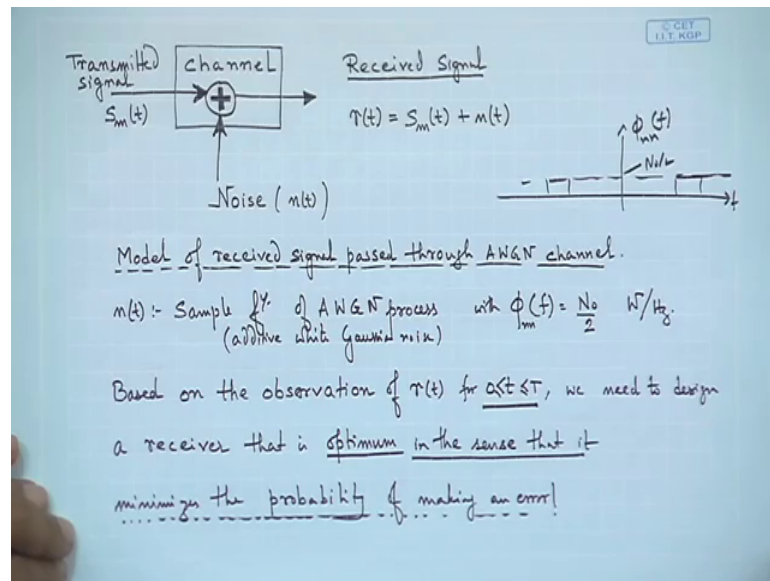 © CET
I.I.T. KGP
Transmitted signal
Sm(t)
channel
+
Noise (n(t))
Received Signal
r(t) = Sm(t) + n(t)
Φnn(f)
No/2
f
Model of received signal passed through AWGN channel.
n(t) :- Sample fⁿ. of AWGN process with Φnn(f) = No/2 W/Hz.
(additive white Gaussian noise)
Based on the observation of r(t) for 0≤t≤T, we need to design
a receiver that is optimum in the sense that it
minimizes the probability of making an error!